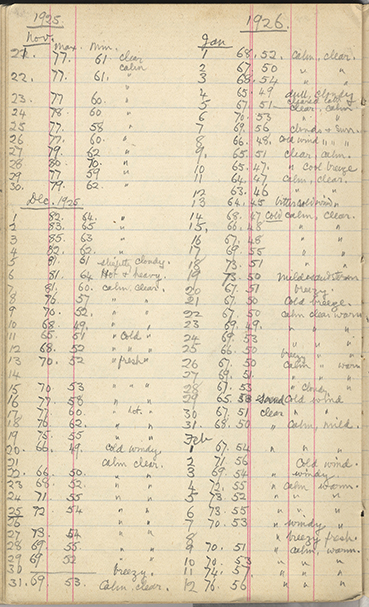 1925.
Nov. Max. Min.
21. 77. 61 clear
calm
22. 77. 61. "
23. 77 60. "
24 78. 60 "
25 77. 58 "
26 77. 60. "
27 79. 62 "
28 80. 70. "
29 77 59 "
30. 79. 62. "
Dec. 1925
1 82. 64. "
2 83. 65 "
3 85. 63 "
4 82. 62. "
5 81 61 slightly cloudy.
6 81 64 Hot & heavy.
7 81. 60. calm, clear.
8 76. 57 " "
9 70. 52. " "
10 68. 49. " "
11 65 51 " Cold "
12 68. 52 " " "
13 70. 52 " fresh "
14
15 70 53 " " "
16 77 58 " "
17 77 60. " hot. "
18 76. 62. " "
19 75 55 " "
20. 66. 49. cold windy
21 calm clear.
22 66. 50 " "
23 68. 52 " "
24 71. 55 " "
25 72. 54 " "
26
27 73. 54 " "
28 69. 55 " "
29 69. 52 " "
30 breezy.
31. 69 53 Calm, clear.
1926.
Jan
1 68. 52. calm, clear.
2 67. 50 " "
3 68. 54 " "
4 65. 49 dull, cloudy
5 67. 51 clear, calm
6 70. 53 " "
7 69. 56 clouds &
8 66. 48. cold wind
9. 65. 51 clear, calm.
10 65. 47. " cool breeze
11 64. 47 calm, clear.
12 63. 46 " "
13 64. 45
14 68. 47 cold calm, clear.
15, 66. 48 " "
16 67. 48 " "
17 69. 55 " "
18 73. 51
19 73. 50 Mild
20 67. 51 breezy.
21 67. 50 Cold breeze.
22 67. 50 calm clear warm
23 69. 49. " " "
24 69. 53 " "
25 66. 50 breezy "
26 67. 50 calm " warm
27 69. 51
28 67. 53 " cloudy
29 65. 58 Cold wind
30 67. 51 clear " "
31. 68. 50 " calm, mild.
Feb
1 67. 54 " "
2 71. 56 Cold wind.
3 69. 54 " windy
4 72. 55 " calm warm.
5 73. 52 " "
6 73. 55 " "
7 70. 53 " windy "
8 " breezy fresh
9 70. 51 " calm, warm.
10 70. 53 " "
11 74. 57 " "
12 76. 56 " "